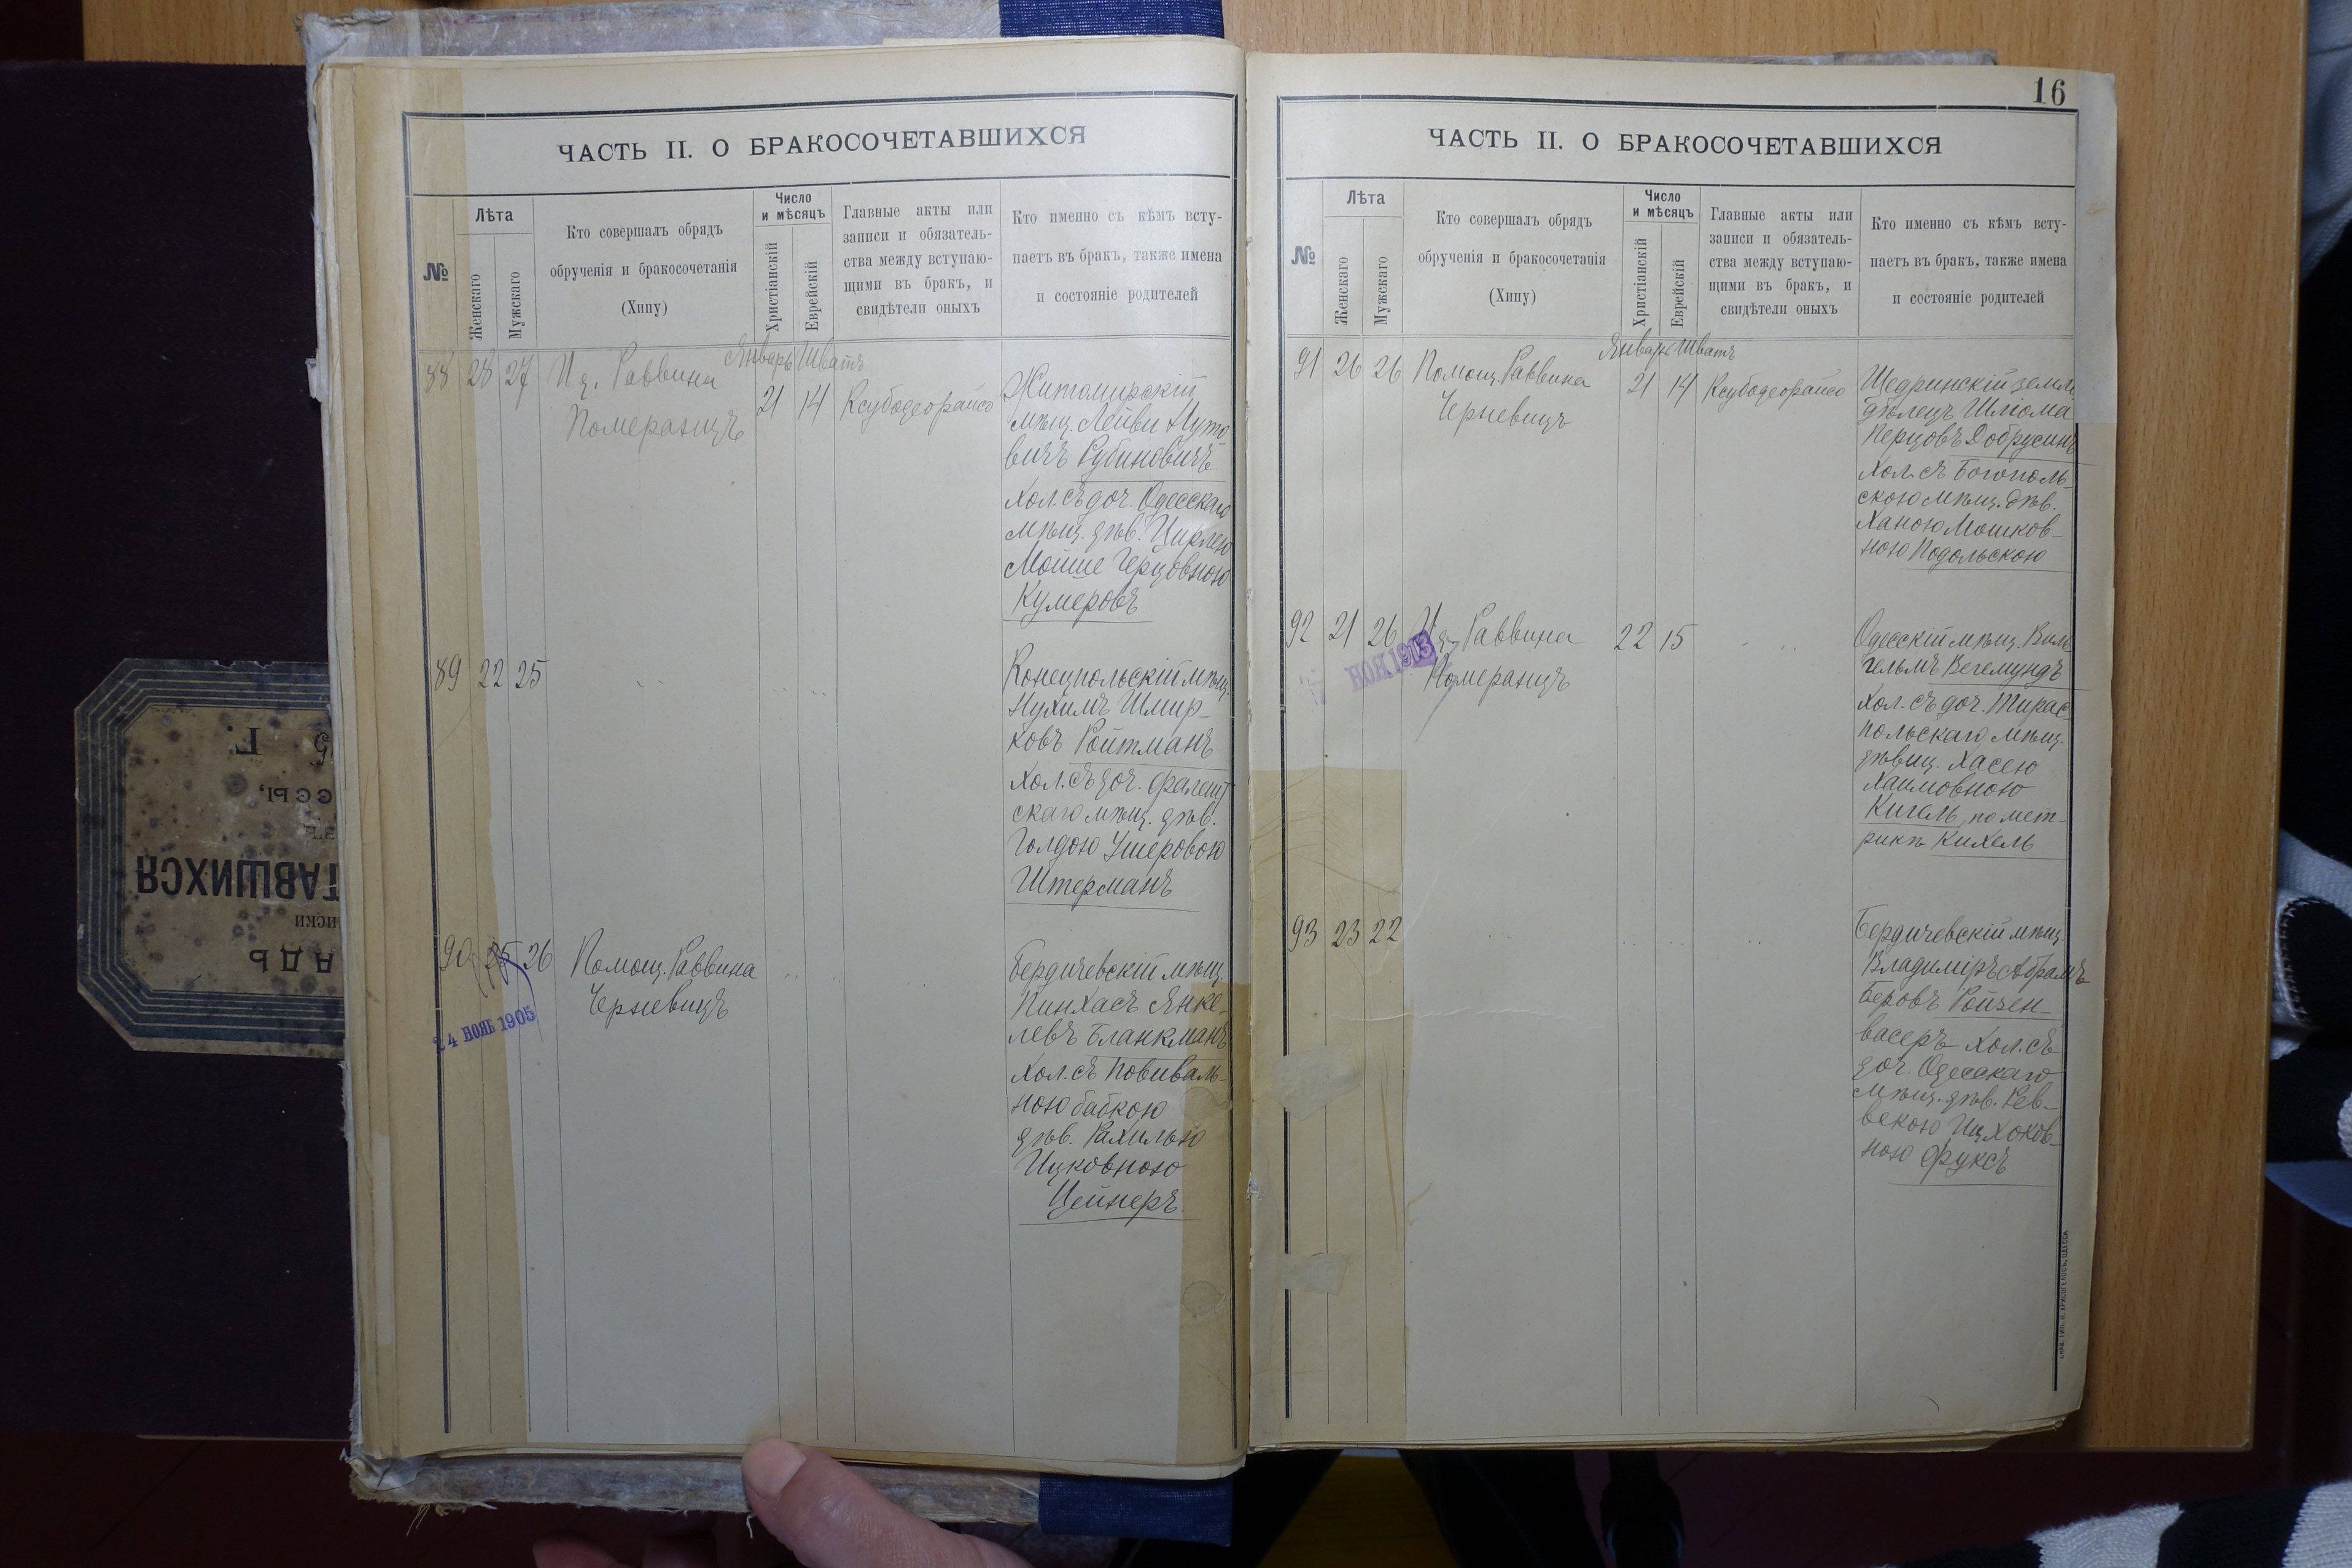 16
ЧАСТЬ II. О БРАКОСОЧЕТАВШИХСЯ
№
Лѣта
Женскаго
Мужскаго
Кто совершалъ обрядъ
обрученія и бракосочетанія
(Хипу)
Число
и мѣсяцъ
Христіанскій
Еврейскій
Главные акты или
записи и обязатель-
ства между вступаю-
щими въ бракъ, и
свидѣтели оныхъ
Кто именно съ кѣмъ всту-
паетъ въ бракъ, также имена
и состояніе родителей
Январь Шватъ
88 28 27 И д. Раввина
Померанцъ
21 14 Ксубодеорайсо
Житомирскій
мѣщ. Лейви Нуто
вичъ Рубиновичъ
хол. съ доч. Одесскаго
мѣщ. дѣв. Цирлею
Мойше Герцовною
Кумеровъ
89 22 25
Конецпольскій мѣщ.
Нухимъ Шмир-
ковъ Ройтманъ
хол. съ доч. Фалешт
скаго мѣщ. дѣв.
Голдою Ушеровою
Штерманъ
90 25 26 Помощ. Раввина
Черневицъ
24 НОЯБ 1905
Бердичевскій мѣщ.
Пинхасъ Янке-
левъ Бланкманъ
хол. съ повиваль-
ною бабкою
дѣв. Рахилью
Ицковною
Цейнеръ.
ЧАСТЬ II. О БРАКОСОЧЕТАВШИХСЯ
№
Лѣта
Женскаго
Мужскаго
Кто совершалъ обрядъ
обрученія и бракосочетанія
(Хипу)
Число
и мѣсяцъ
Христіанскій
Еврейскій
Главные акты или
записи и обязатель-
ства между вступаю-
щими въ бракъ, и
свидѣтели оныхъ
Кто именно съ кѣмъ всту-
паетъ въ бракъ, также имена
и состояніе родителей
Январь Шватъ
91 26 26 Помощ. Раввина
Черневицъ
21 14 Ксубодеорайсо
Щедринскій земле
дѣлецъ Шлiома
Перцовъ Добрусинъ
хол. съ Богополь-
скою мѣщ. дѣв.
Ханою Мошков-
ною Подольскою
92 21 26 И д. Раввина
Померанцъ
1913
22 15
Одесскій мѣщ. Виль-
гельмъ Вегемундъ
хол. съ доч. Тирас-
польскаго мѣщ.
дѣвиц. Хасею
Хаимовною
Кигель, по мет-
рикѣ Кихель
93 23 22
Бердичевскій мѣщ.
Владиміръ Абрамъ
Беровъ Ройзен-
васеръ хол. съ
доч. Одесскаго
мѣщ. дѣв. Рев-
векою Ицхоков-
ною Фуксъ
ТАВШИХСЯ